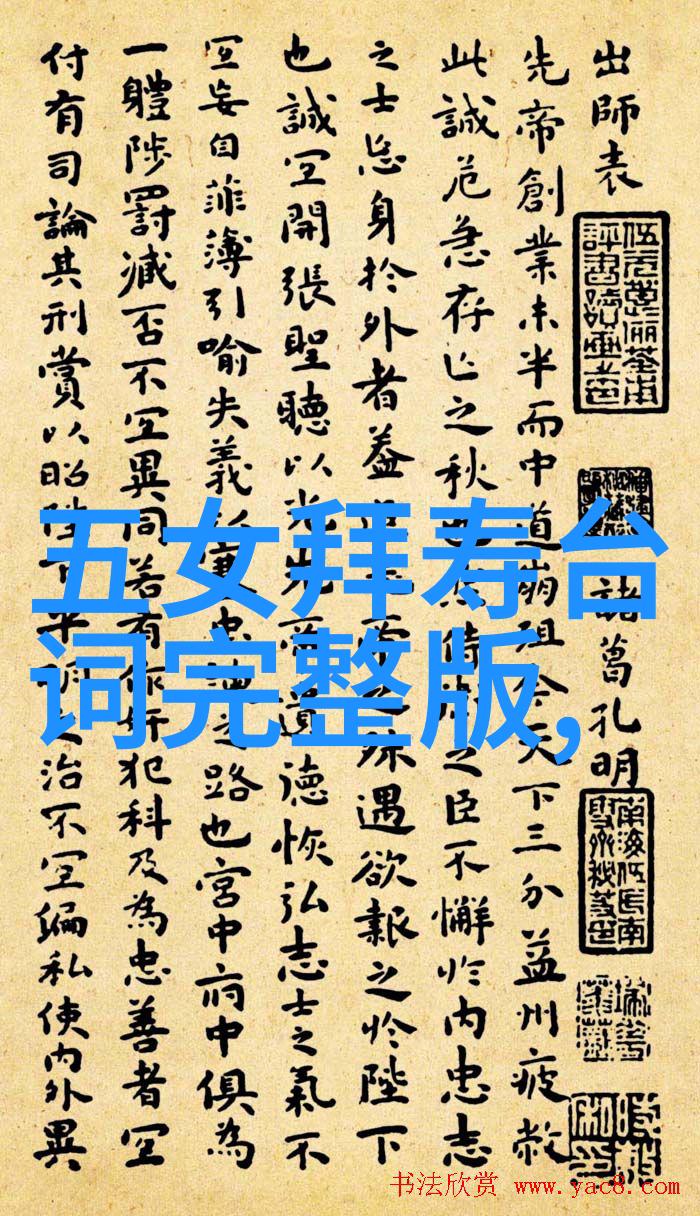 出師表
諸葛孔明
先帝創業未半而中道崩殂今天下三分益州疲敝
此誠危急存亡之秋也然侍衛之臣不懈於內忠志
之士忘身於外者蓋追先帝之殊遇欲報之於陛下
也誠宜開張聖聽以光先帝遺德恢弘志士之氣不
宜妄自菲薄引喻失義以塞忠諫之路也宮中府中俱為
一體陟罰臧否不宜異同若有作奸犯科及為忠善者宜
付有司論其刑賞以昭陛下平明之治不宜偏私使內外異
五女拜寿台
词完整版,
书法欣赏 www.yac8.com